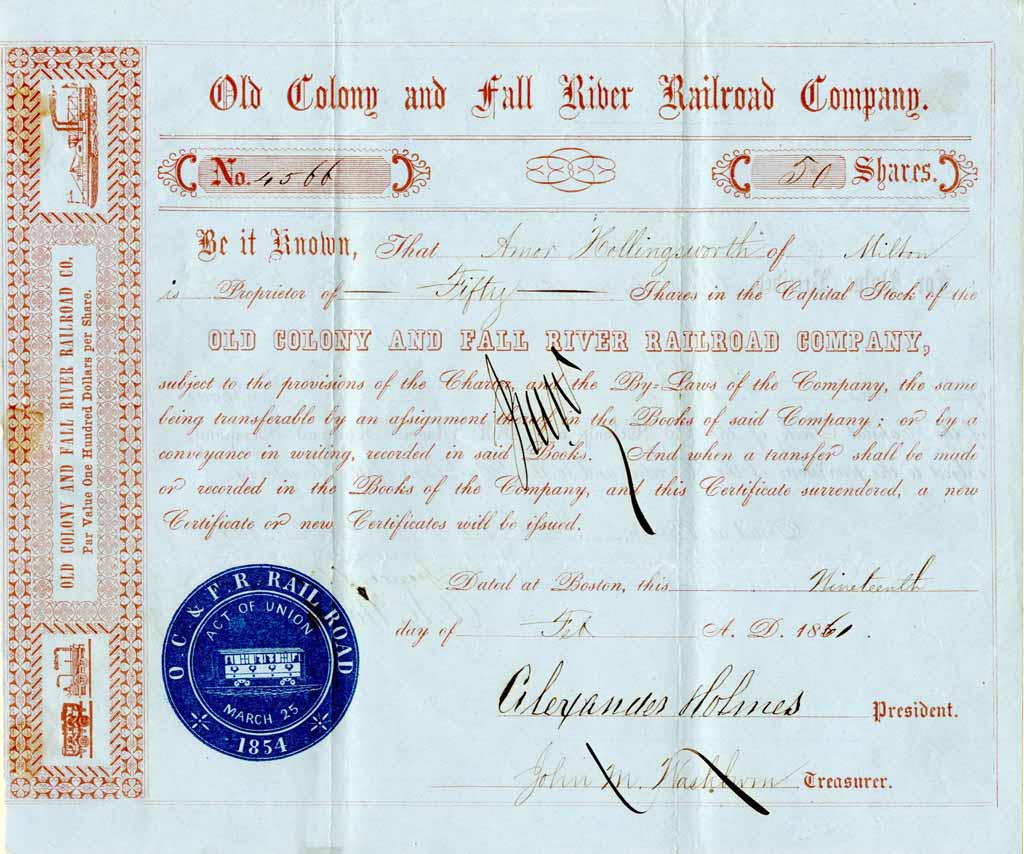 Old Colony and Fall River Railroad Company.
No. 4566
50 Shares.
Be it Known, That Amor Hollingsworth of Milton
is Proprietor of Fifty Shares in the Capital Stock of the
OLD COLONY AND FALL RIVER RAILROAD COMPANY,
subject to the provisions of the Charter, and the By-Laws of the Company, the same
being transferable by an assignment thereof in the Books of said Company; or by a
conveyance in writing, recorded in said Books. And when a transfer shall be made
or recorded in the Books of the Company, and this Certificate surrendered, a new
Certificate or new Certificates will be issued.
Dated at Boston, this Nineteenth
day of Feb A. D. 1861.
Alexander Holmes President.
John M. Washburn Treasurer.
OLD COLONY AND FALL RIVER RAILROAD CO.
Par Value One Hundred Dollars per Share.
O C & F. R. RAIL ROAD
ACT OF UNION
MARCH 25
1854